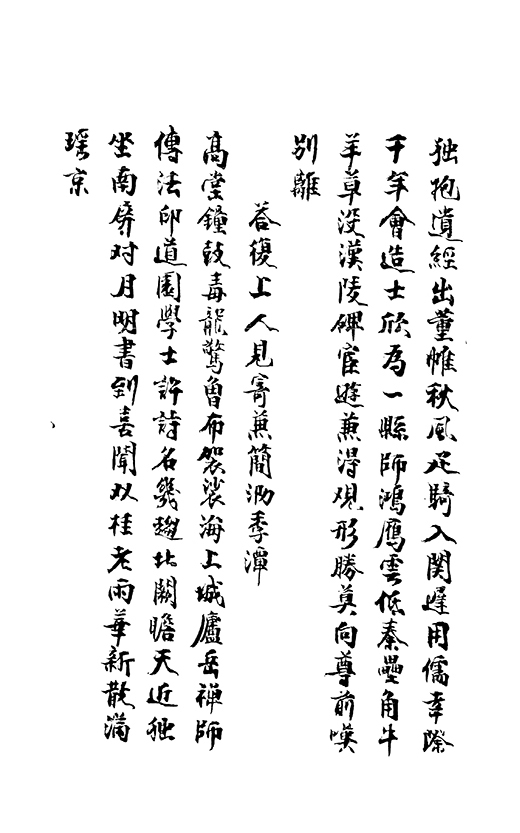 独抱遺經出董帷秋風疋騎入関遲用儒幸際
千年會造士欣為一縣師鴻鴈雲低秦壘角牛
羊草没漢陵碑宦遊兼得觀形勝莫向尊前嘆
别離
荅復上人見寄兼簡泐季潭
高堂鐘鼓毒龍驚曽布袈裟海上城廬岳禅師
傳法印道園學士許詩名幾趍北闕瞻天近独
坐南房对月明書到喜聞双桂老雨華新散滿
瑶京